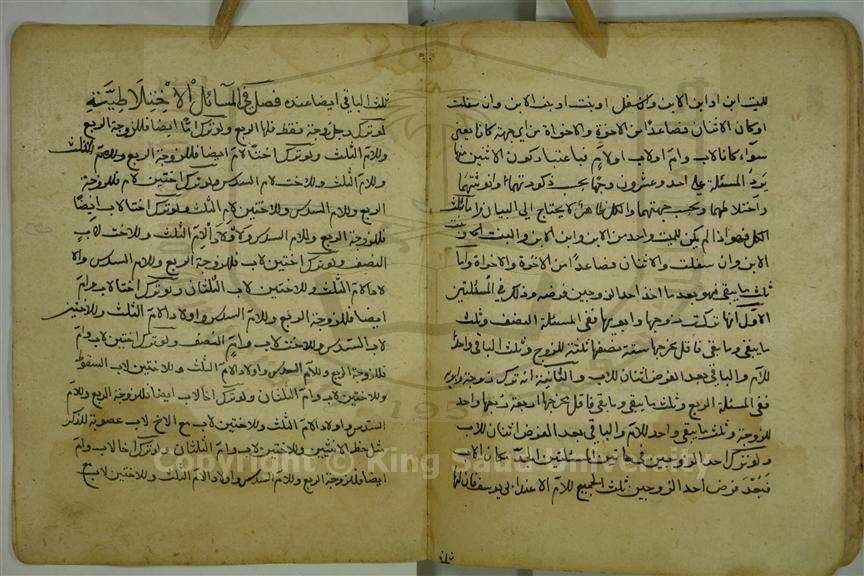 للميت ابن او ابن الابن وان سفل او بنت او بنت الابن وان سفلت
او كان الاثنان فصاعدًا من الاخوة والاخوات من اي جهة كانا يعني
سواء كانا لاب وام او لاب او لام فباعتبار كون الاثنين منها
المسئلة احد وعشرون وجها بحسب ذكورتهما وانوثتهما
واختلاطهما وبحسب جهتهما والكل ظاهر لا يحتاج الى البيان
الكل فهو اذا لم يكن للميت واحد من الابن وابن الابن والبنت
الابن وان سفلت والاثنان فصاعدًا من الاخوة والاخوات واما
ثلث ما يبقى فهو بعد ما اخذ احد الزوجين فرضه وذلك في المسئلتين
الاولى انها تركت زوجها وابويها ففي المسئلة النصف وثلث
ما يبقى وما بقى فاقل مخرجها ستة نصفها ثلثة للزوج وثلث الباقي واحد
للام والباقي بعد الفرض اثنان للاب والثانية انه ترك زوجة وابويه
ففي المسئلة الربع وثلث ما يبقى وما بقى فاقل مخرجها اربعة ربعها واحد
للزوجة وثلث ما يبقى واحد للام والباقي بعد الفرض اثنان للاب
ولو ترك احد الزوجين في هاتين المسئلتين الجد مكان الاب
فبعد فرض احد الزوجين ثلث الجميع للام الا عند ابي يوسف فان لها
ثلث الباقي ايضا عنده فصل في المسائل الاختلاطية
لو ترك رجل زوجة فقط فلها الربع ولو ترك امًا ايضا فللزوجة الربع
وللام الثلث ولو ترك اختا لام ايضا فللزوجة الربع وللام الثلث
وللام الثلث وللاخت لام السدس ولو ترك اختين لام فللزوجة
الربع وللام السدس وللاختين لام الثلث ولو ترك اختا لاب ايضًا
فللزوجة الربع وللام السدس ولاولاد الام الثلث وللاخت لاب
النصف ولو ترك اختين لاب فللزوجة الربع وللام السدس ولاو
لاد الام الثلث وللاختين لاب الثلثان ولو ترك اختا لاب وام
ايضا فللزوجة الربع وللام السدس ولاولاد الام الثلث وللاختين
لاب السدس وللاخت لاب وام النصف ولو ترك اختين لاب وام
فللزوجة الربع وللام السدس ولاولاد الام الثلث وللاختين لاب السقوط
وللاختين لاب وام الثلثان ولو ترك اخا لاب ايضا فللزوجة الربع وللام
السدس ولاولاد الام الثلث وللاختين لاب مع الاخ لاب عصوبة للذكر
مثل حظ الانثيين وللاختين لاب وام الثلثان ولو ترك اخا لاب وام
ايضا فللزوجة الربع وللام السدس ولاولاد الام الثلث وللاختين لاب مع
Copyright © King Saud University
1957